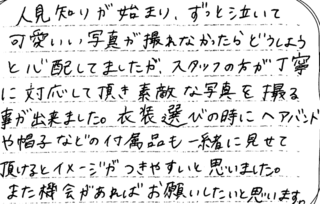 人見知りが始まり、ずっと泣いて
可愛いい写真が撮れなかったらどうしよう
と心配してましたが、スタッフの方が丁寧
に対応して頂き素敵な写真を撮る
事が出来ました。衣装選びの時にヘアバンド
や帽子などの付属品も一緒に見せて
頂けるとイメージがつきやすいと思いました。
また機会があればお願いしたいと思います。